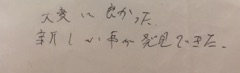 大変に良かった。
新しい事が発見できた。